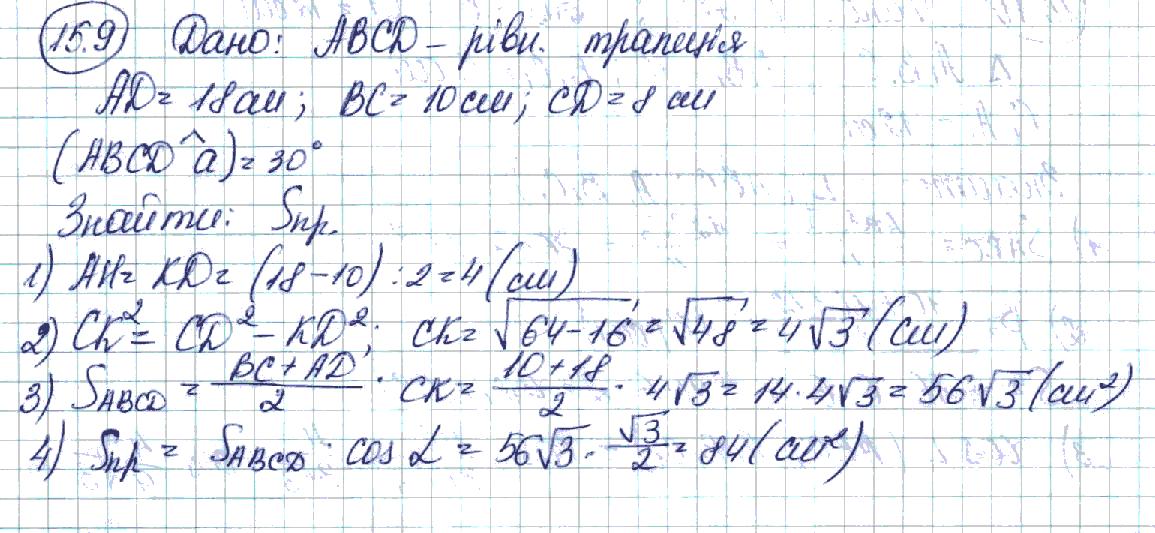 15.9 Дано: ABCD – рівн. трапеція
AD = 18 см; BC = 10 см; CD = 8 см
(ABCD^a) = 30°
Знайти: Sпр.
1) AH = KD = (18-10) : 2 = 4 (см)
2) CK² = CD² - KD²; CK = √64-16 = √48 = 4√3 (см)
3) SABCD = BC + AD / 2 · CK = 10 + 18 / 2 · 4√3 = 14 · 4√3 = 56√3 (см²)
4) Sпр = SABCD · cos α = 56√3 · √3 / 2 = 84 (см²)